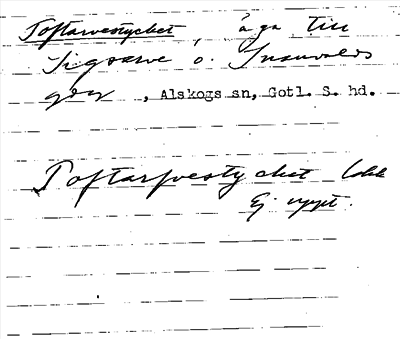 Toftarvestycket, äga till
Sigsarve o. Snausarve
, Alskogs sn, Gotl. S. hd.
Toftarfvestycket
Ej uppt.